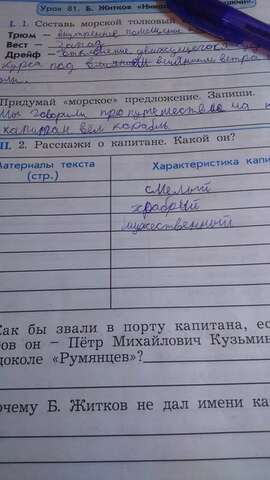 Урок 81. Б. Житков «Нико
I. 1. Составь морской толковый
Трюм – внутренние помещени
Вест – запад
Дрейф –
курса под влиянием ветра
Придумай «морское» предложение. Запиши.
Мы говорили про путешествие на к
капитан вёл корабль
II. 2. Расскажи о капитане. Какой он?
Материалы текста
(стр.)
Характеристика капи
смелый
храбрый
мужественный
Как бы звали в порту капитана, ес
бов он – Пётр Михайлович Кузьмин
доколе «Румянцев»?
очему Б. Житков не дал имени ка